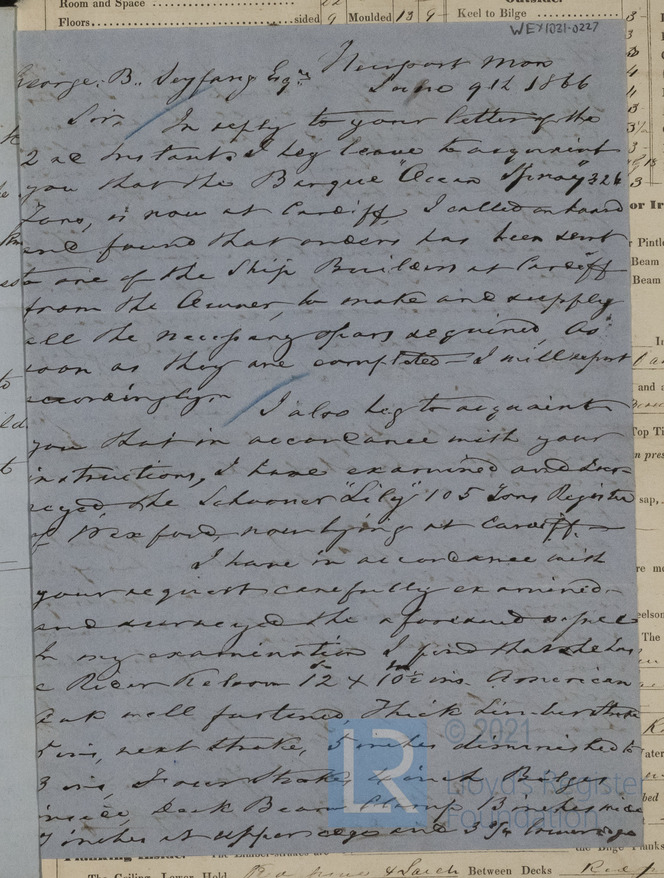 Room and Space
Floors sided 9 Moulded 13 9
Keel to Bilge
WEX1031-0227
Newport Mon
George. B. Seyfang Esqre
June 9th 1866
Sir, In reply to your letter of the
2nd Instant I beg leave to acquaint
you that the Barque "Ocean Spray" 326
Tons, is now at Cardiff, I called on board
and found that orders has been sent
to one of the Ship Builders at Cardiff
from the Owner, to make and supply
all the necessary spars required As
soon as they are completed I will report
accordingly
I also beg to acquaint
you that in accordance with your
instructions, I have examined and sur-
veyed the Schooner "Lily" 105 Tons Register
of Wexford, now lying at Cardiff
I have in accordance with
your request carefully examined
and surveyed the aforesaid vessel
In my examination I find that she has
a Rider Kelson 12 x 10½ ins. American
oak well fastened, Thick Limber Strake
ins, next Strake, 5 inches diminished to
3 ins, Four Strakes inch Bilges
inside, Deck Beam Clamp 13 inches wide
7 inches at upper edge and 3¾ lower edge
© 2021
LR
Lloyd's Register
Foundation
The Ceiling, Lower Hold
Between Decks